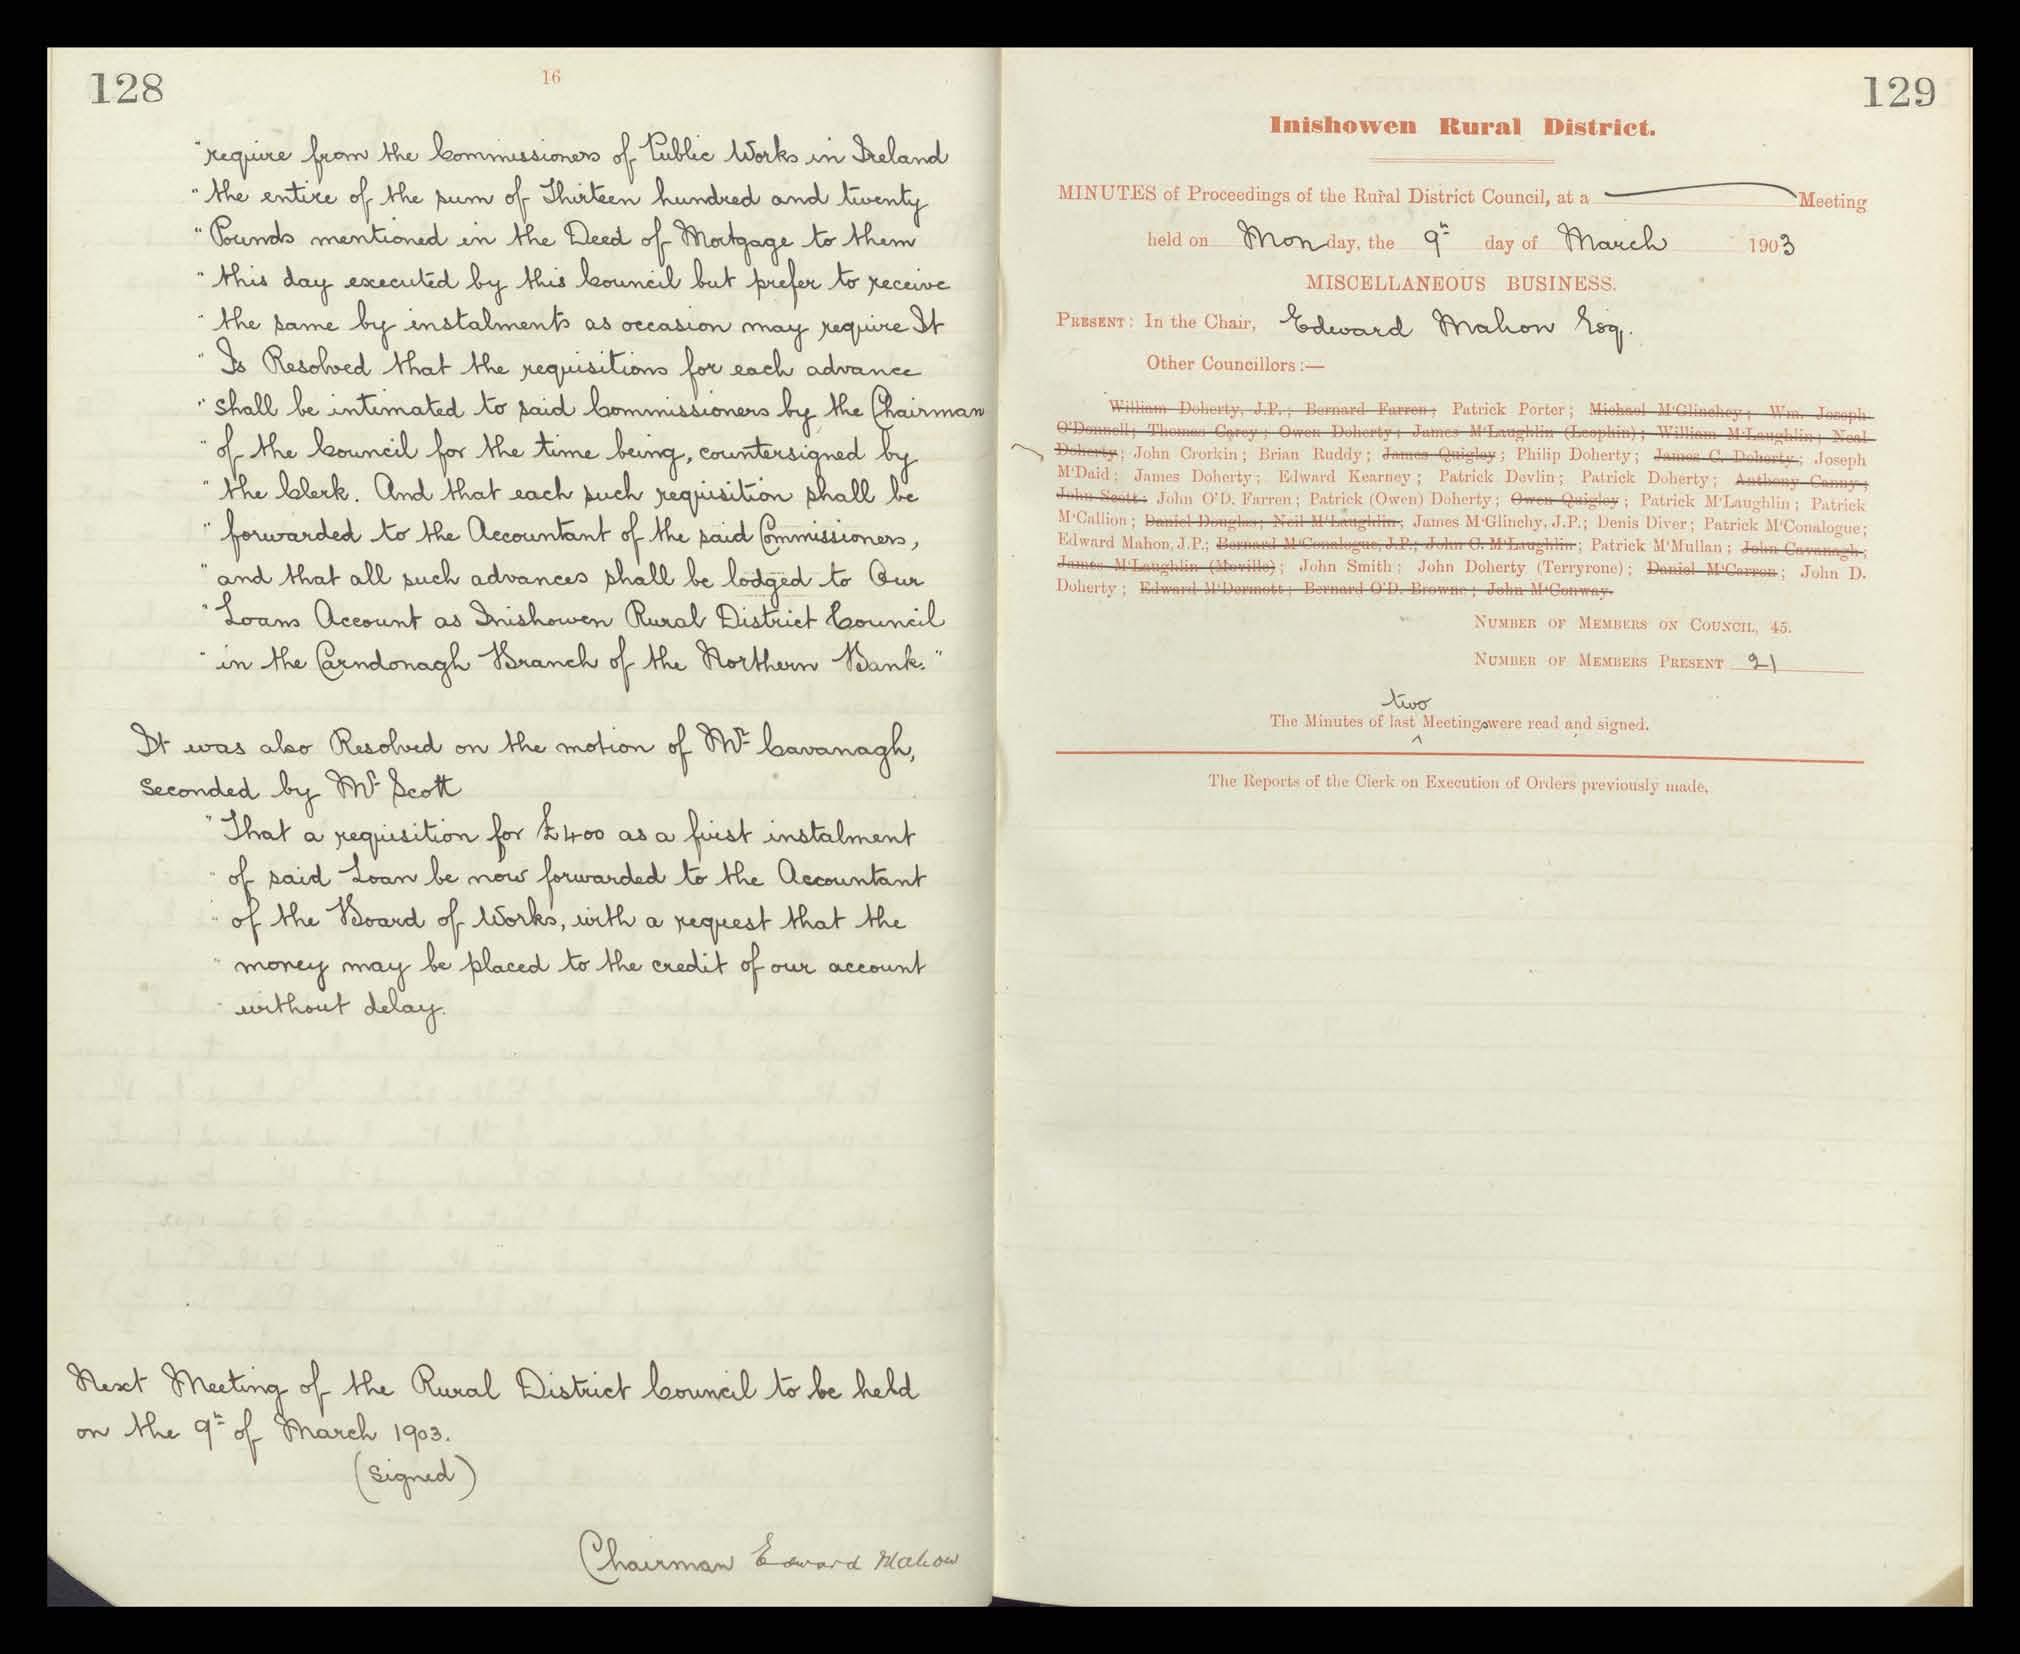 128
16
"require from the Commissioners of Public Works in Ireland
"the entire of the sum of Thirteen hundred and twenty
"Pounds mentioned in the Deed of Mortgage to them
"this day executed by this Council but prefer to receive
"the same by instalments as occasion may require It
"Is Resolved that the requisitions for each advance
"shall be intimated to said Commissioners by the Chairman
"of the Council for the time being, countersigned by
"the Clerk. And that each such requisition shall be
"forwarded to the Accountant of the said Commissioners,
"and that all such advances shall be lodged to Our
"Loans Account as Inishowen Rural District Council
"in the Carndonagh Branch of the Northern Bank."
It was also Resolved on the motion of Mr Cavanagh,
seconded by Mr Scott
"That a requisition for £400 as a first instalment
"of said Loan be now forwarded to the Accountant
"of the Board of Works, with a request that the
"money may be placed to the credit of our account
"without delay.
Next Meeting of the Rural District Council to be held
on the 9th of March 1903.
(signed)
Chairman Edward Mahon
129
Inishowen Rural District.
MINUTES of Proceedings of the Rural District Council, at a Meeting
held on Monday, the 9th day of March 1903
MISCELLANEOUS BUSINESS.
PRESENT: In the Chair, Edward Mahon Esq.
Other Councillors:—
William Doherty, J.P.; Bernard Farren; Patrick Porter; Michael M'Glinchey; Wm. Joseph
O'Donnell; Thomas Carey; Owen Doherty; James M'Laughlin (Leophin); William M'Laughlin; Neal
Doherty; John Crorkin; Brian Ruddy; James Quigley; Philip Doherty; James C. Doherty; Joseph
M'Daid; James Doherty; Edward Kearney; Patrick Devlin; Patrick Doherty; Anthony Canny;
John Scott; John O'D. Farren; Patrick (Owen) Doherty; Owen Quigley; Patrick M'Laughlin; Patrick
M'Callion; Daniel Douglas; Neil M'Laughlin; James M'Glinchy, J.P.; Denis Diver; Patrick M'Conalogue;
Edward Mahon, J.P.; Bernard M'Conalogue, J.P.; John C. M'Laughlin; Patrick M'Mullan; John Cavanagh;
James M'Laughlin (Moville); John Smith; John Doherty (Terryrone); Daniel M'Carron; John D.
Doherty; Edward M'Dermott; Bernard O'D. Browne; John M'Conway.
NUMBER OF MEMBERS ON COUNCIL, 45.
NUMBER OF MEMBERS PRESENT 21
two
The Minutes of last Meetings were read and signed.
The Reports of the Clerk on Execution of Orders previously made,